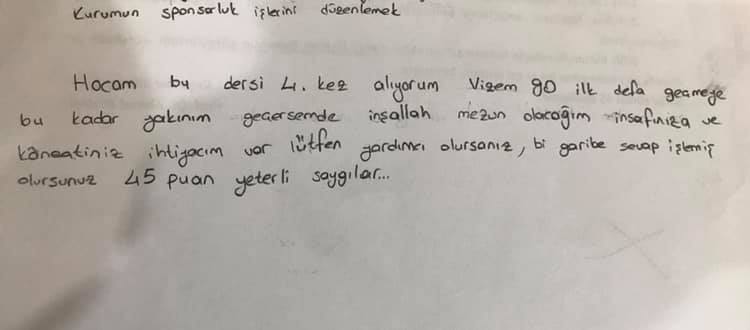 Kurumun sponsorluk işlerini düzenlemek
Hocam bu dersi 4. kez alıyorum Vizem 90 ilk defa geçmeye
bu kadar yakınım geçersemde inşallah mezun olacağım insafınıza ve
kanaatiniz ihtiyacım var lütfen yardımcı olursanız, bi garibe sevap işlemiş
olursunuz 45 puan yeterli saygılar...